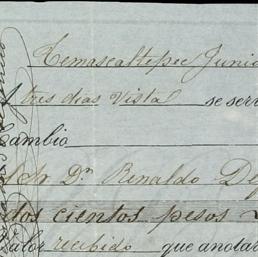 Temascaltepec Junio
A tres dias Vista se serv
Cambio
Sr. Dn. Renaldo De
dos cientos pesos
Valor recibido que anotar